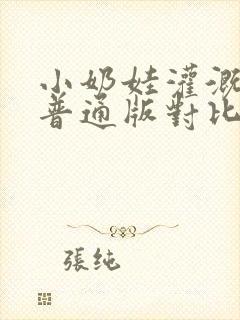 小奶娃灌溉
普通版對比
張純